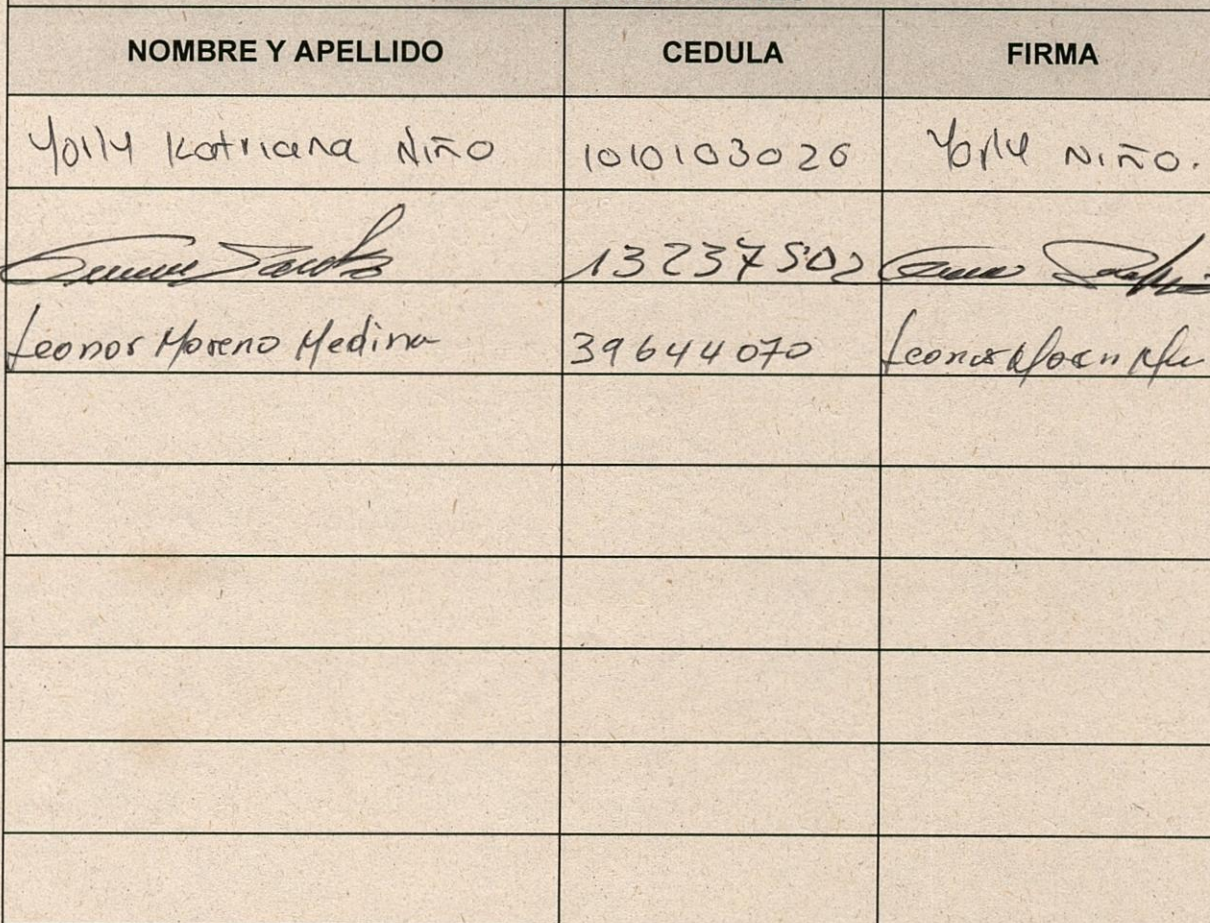 NOMBRE Y APELLIDO CEDULA FIRMA
Yorly Katriana Niño 1010103026 Yorly Niño.
13237502
Leonor Moreno Medina 39644070 Leonor